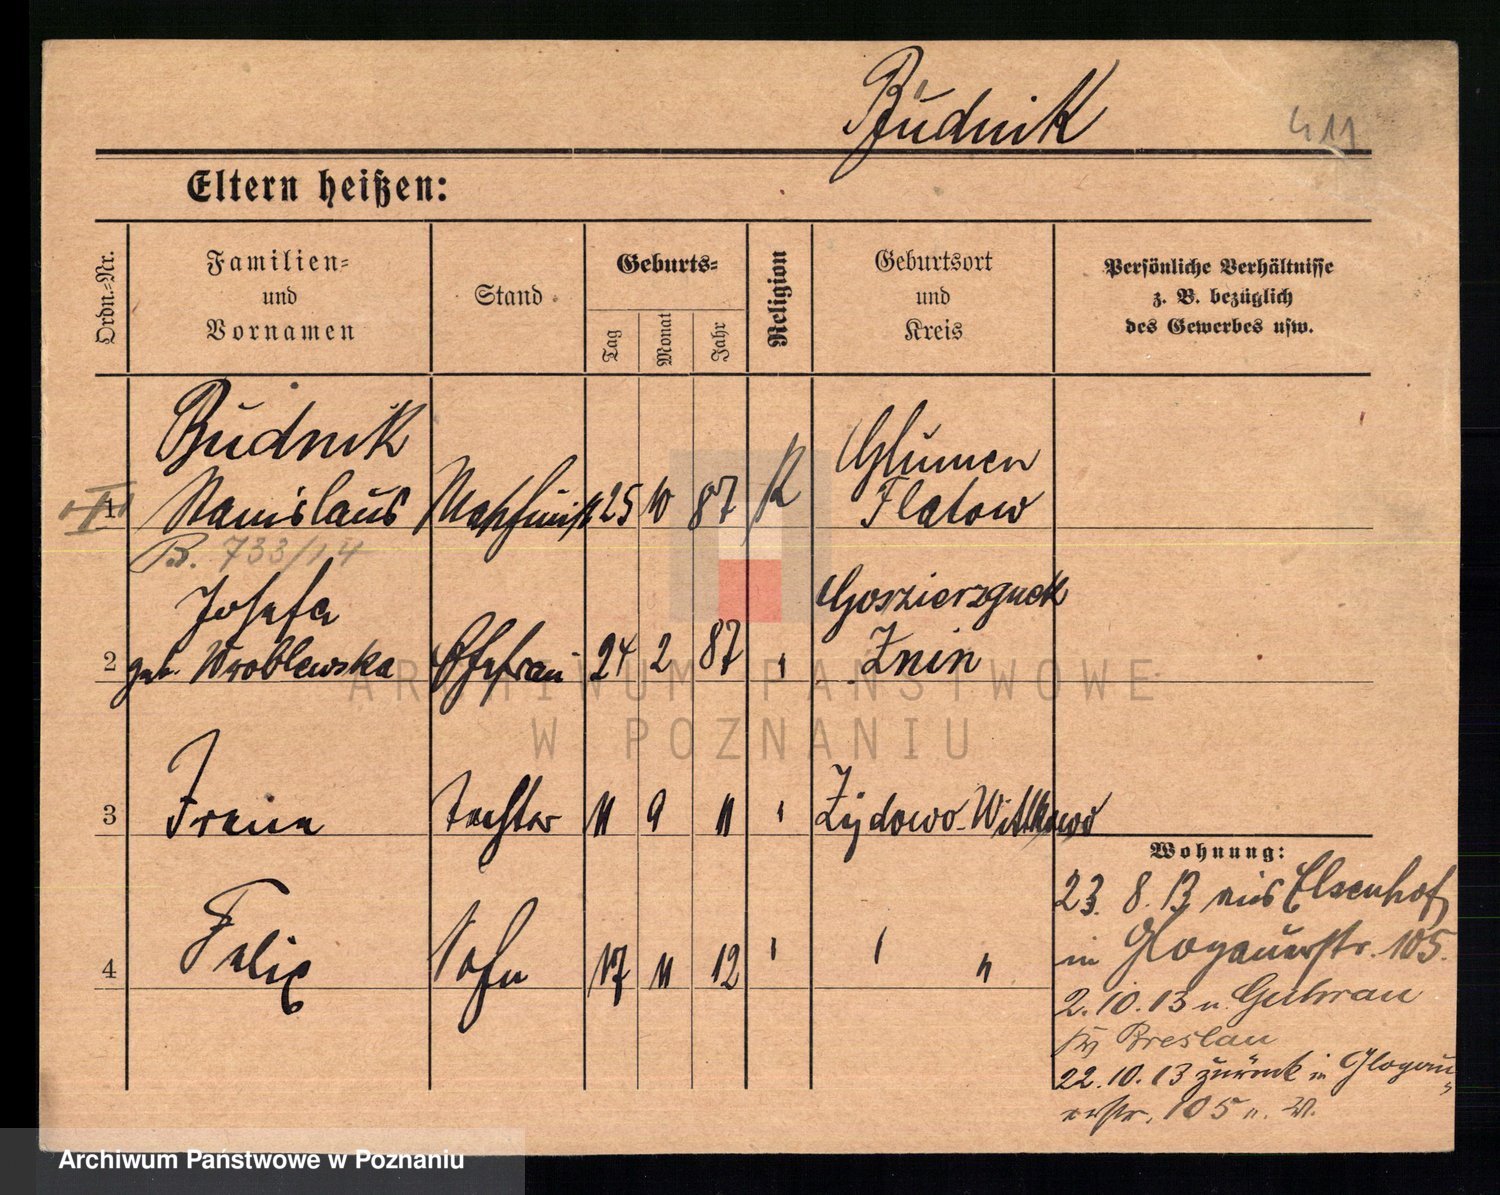 Budnik
411
Eltern heißen:
Ordn.-Nr.
Familien-
und
Vornamen
Stand
Geburts-
Tag
Monat
Jahr
Religion
Geburtsort
und
Kreis
Persönliche Verhältnisse
z. B. bezüglich
des Gewerbes usw.
Budnik
1 Stanislaus 25 10 87 K
Glumen
Flatow
B. 733/14
Josefa
2 geb. Wroblewska Ehefrau 24 2 87 "
Znin
3 Irene Tochter 11 9 11 " Zydowo-Wittkowo
4 Felix Sohn 17 11 12 " " "
Wohnung:
23. 8. 13 aus Elsenhof
in Glogauerstr. 105.
2. 10. 13 n. Guhrau
Bz Breslau
22. 10. 13 zurück in Glogau-
erstr. 105
ARCHIWUM PAŃSTWOWE
W POZNANIU
Archiwum Państwowe w Poznaniu